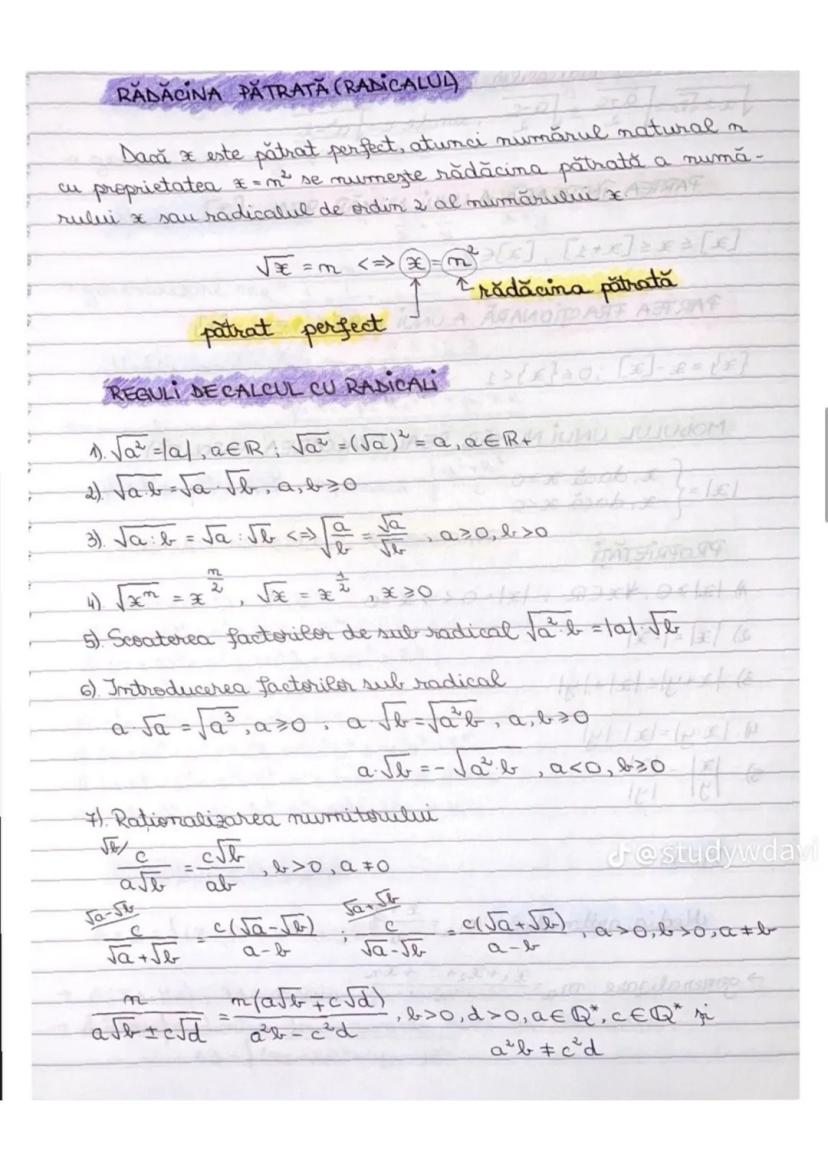 RĂDĂCINA PĂTRATĂ (RADICALUL)
Dacă x este pătrat perfect, atunci numărul natural n
cu proprietatea x = n² se numește rădăcina pătrată a numă-
rului x sau radicalul de ordin 2 al numărului x.
√x = n <=> x = n²
rădăcina pătrată
pătrat perfect
REGULI DE CALCUL CU RADICALI
1). √a² = |a|, a∈ℝ ; √a² = (√a)² = a, a∈ℝ+
2). √a·b = √a · √b, a, b ≥ 0
3). √a:b = √a : √b <=> √(a/b) = √a/√b, a≥0, b>0
4). √xⁿ = x^(n/2), √x = x^(1/2), x≥0
5). Scoaterea factorilor de sub radical √a²·b = |a|·√b
6). Introducerea factorilor sub radical
a·√a = √a³, a≥0, a·√b = √a²b, a, b≥0
a·√b = -√a²·b, a<0, b≥0
7). Raționalizarea numitorului
√b/ c/(a√b) = c√b/(ab), b>0, a≠0
√a-√b/ c/(√a+√b) = c(√a-√b)/(a-b) ; √a+√b/ c/(√a-√b) = c(√a+√b)/(a-b), a>0, b>0, a≠b
n/(a√b ± c√d) = n(a√b ∓ c√d)/(a²b - c²d), b>0, d>0, a∈ℚ*, c∈ℚ* și
a²b ≠ c²d
@studywdavi